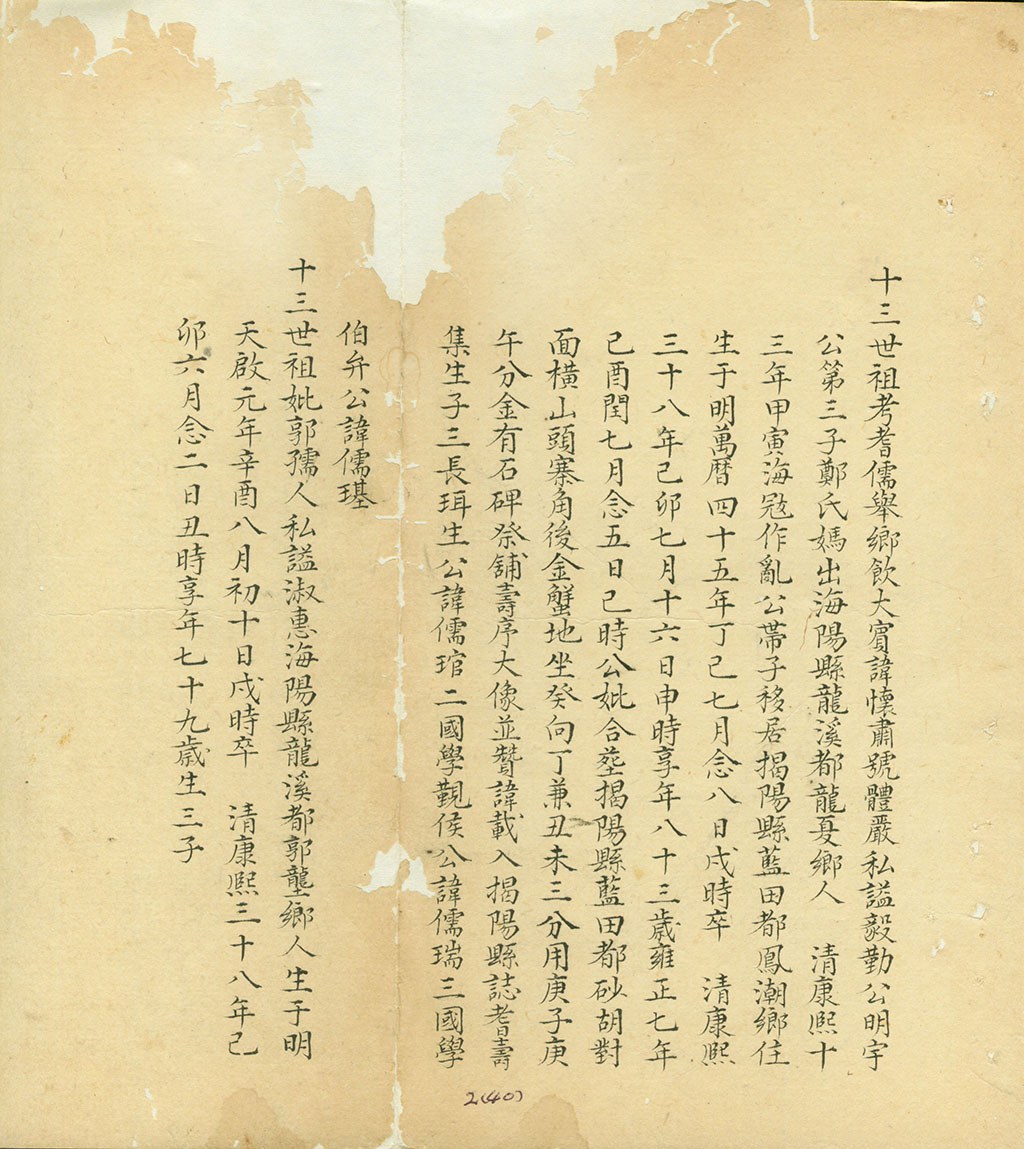 十三世祖考耆儒舉鄉飲大賓諱懷肅號體嚴私謚毅勤公明宇
公第三子鄭氏媽出海陽縣龍溪都龍夏鄉人　清康熙十
三年甲寅海冦作亂公帶子移居揭陽縣藍田都鳳潮鄉住
生于明萬曆四十五年丁巳七月念八日戌時卒　清康熙
三十八年己卯七月十六日申時享年八十三歲雍正七年
己酉閏七月念五日巳時公妣合塟揭陽縣藍田都砂胡對
面橫山頭寨角後金蟹地坐癸向丁兼丑未三分用庚子庚
午分金有石碑祭舖壽序大像並贊諱載入揭陽縣誌耆壽
集生子三長珥生公諱儒琯二國學覲侯公諱儒瑞三國學
伯弁公諱儒璂
十三世祖妣郭孺人私謚淑惠海陽縣龍溪都郭壟鄉人生于明
天啟元年辛酉八月初十日戌時卒　清康熙三十八年己
卯六月念二日丑時享年七十九歲生三子
2(40)